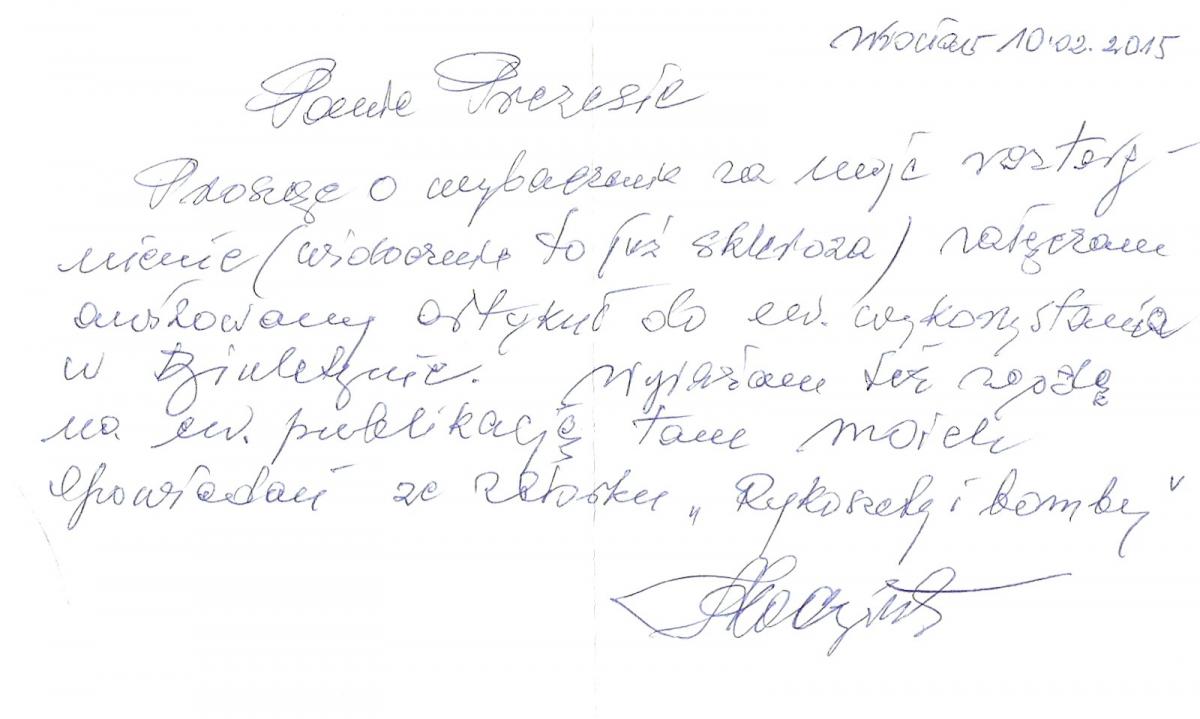 Wrocław 10.02.2015
Panie Prezesie
Proszę o wybaczenie za moje roztarg-
nienie (widocznie to już skleroza) załączam
artykuł do ew. wykorzystania
w Biuletynie. Wyrażam też zgodę
na ew. publikację tam moich
opowiadań ze zbiorku „Rykoszety i bomby”